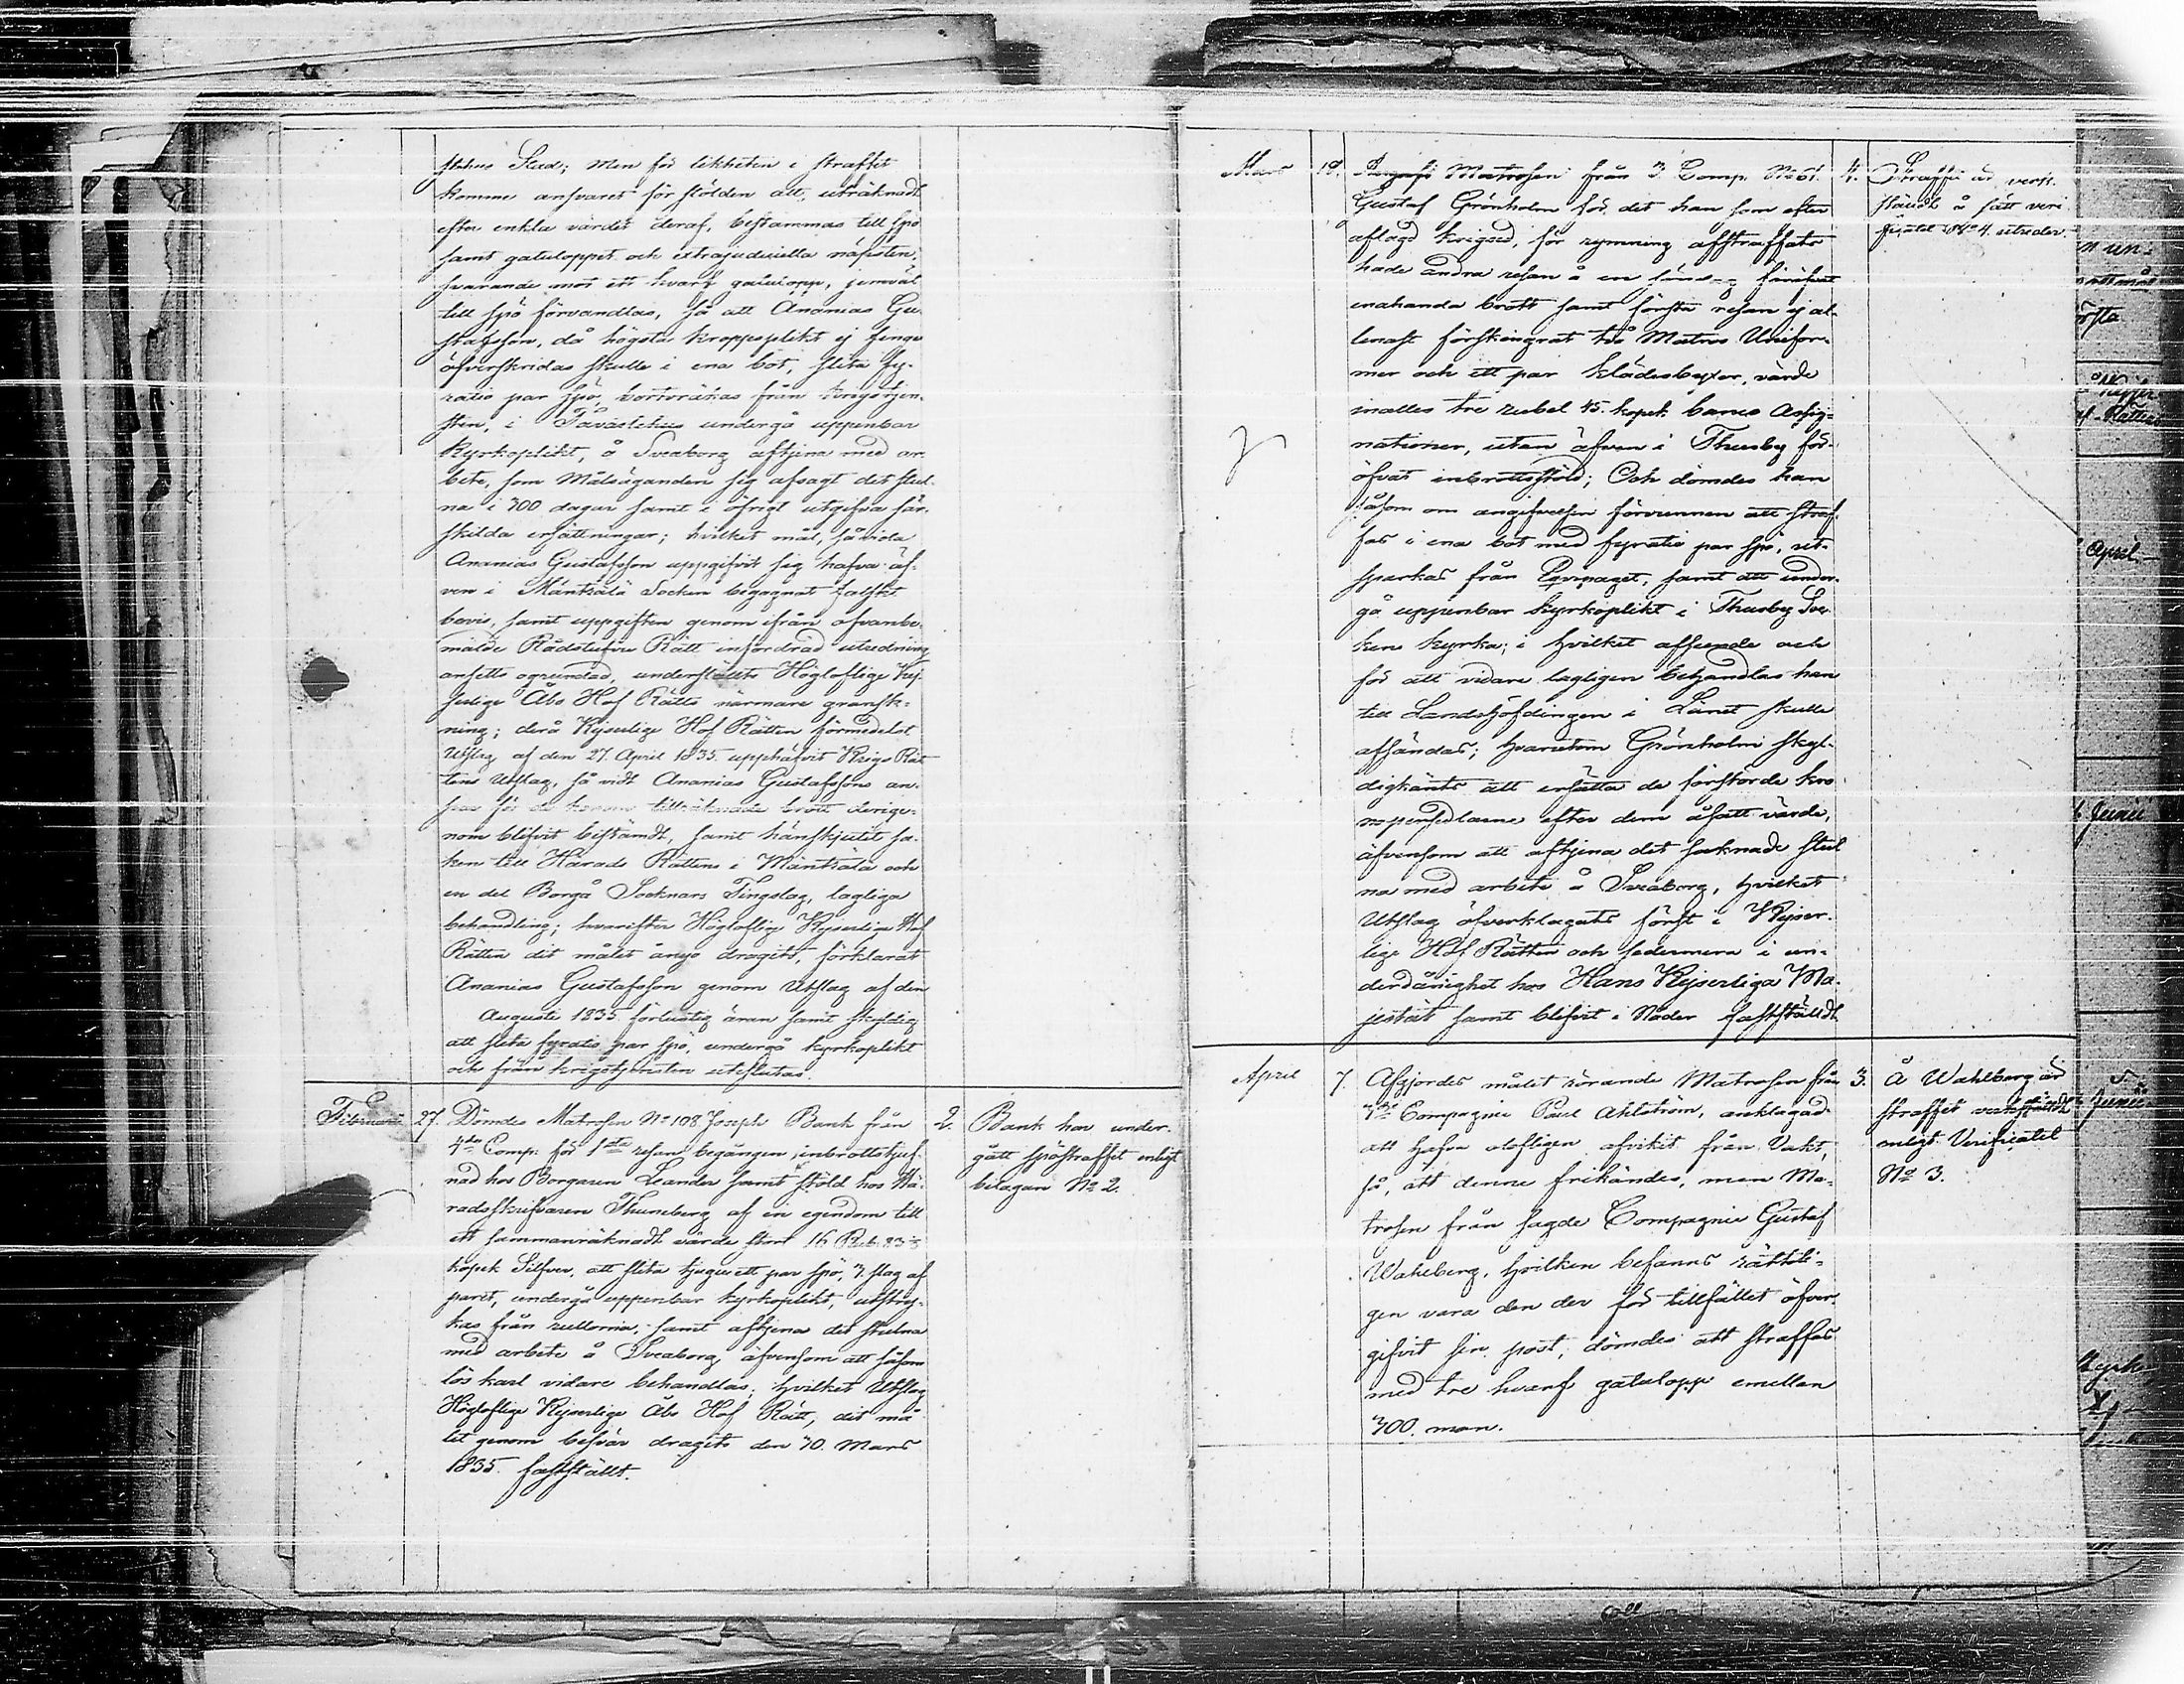 stehus Stad; men för likheten i straffet
komme ansvaret för stölden att, uträknadt
efter enkla värdet deraf, bestammas till spö
samt gatuloppet och extrajudiciella näpsten,
svarande mot ett hvarf gatulopp, jemväl
till spö förvandlas, så att Ananias Gu-
stafsson, då högsta kroppsplikt ej finge
öfverskridas skulle i ena bot, slita fy-
ratio par spö, bortvräkas från krigstjen-
sten, i Tavastehus undergå uppenbar
Kyrkoplikt, å Sveaborg aftjena med ar-
bete, som Målsäganden sig afsagt det stul-
na i 300 dagar samt i öfrigt utgifva sär-
skilda ersättningar; hvilket mål, såvida
Ananias Gustafsson uppgifvit sig hafva äf-
ven i Mäntsälä Socken begagnat falskt
bevis, samt uppgiften genom ifrån ofvanbe-
mälde Rådstufvu Rätt infordrad utredning
ansetts ogrundad, underställts Höglofliga Kej-
serlige Åbo Hof Rätts närmare gransk-
ning; derå Kejserlige Hof Rätten förmedelst
Utslag af den 27. April 1835. upphäfvit Krigs Rät-
tens Utslag, så vidt Ananias Gustafssons an-
svar för de honom tillräknade brott derige-
nom blifvit bestämdt, samt hänskjutit sa-
ken till Härads Rättens i Mäntsälä och
en del Borgå Socknars Tingslag, lagliga
behandling; hvarefter Höglofliga Kejserliga Hof
Rätten dit målet ånyo dragits, förklarat
Ananias Gustafsson genom Utslag af den
Augusti 1835 förlustig äran samt skyldig
att slita fyratio par spö, undergå kyrkoplikt
och från krigstjensten uteslutas.
Februarii 27. Dömdes Matrosen No 108 Joseph Bank från
4de Comp. för 1sta resan begången inbrottstjuf-
nad hos Borgaren Leander samt stöld hos Hä-
radsskrifvaren Thuneberg af en egendom till
ett sammanräknadt värde stort 16 Rub. 83
kopek Silfver, att slita tjuguett par spö, 3. slag af
paret, undergå uppenbar kyrkoplikt, utstry-
kas från rullorna, samt aftjena det stulna
med arbete å Sveaborg, äfvensom att såsom
lös karl vidare behandlas; hvilket Utslag
Höglofliga Kejserliga Åbo Hof Rätt, dit må-
let genom besvär dragits den 30. Mars
1835. fastställt.
2. Bank har under-
gått spöstraffet enligt
bilagan No 2.
Mars 18. Matrosen från 3. Comp. No 61.
Gustaf Grönholm för det han som efter
aflagd krigsed, för rymning afstraffats
hade andra resan å en
enahanda brott samt första resan ej al-
lenast förskingrat två Matros Unifor-
mer och ett par klädesbyxor, värde
inalles tre rubel 45. kopek banco Assig-
nationer, utan äfven i Thusby för-
öfvat inbrottsstöld; Och dömdes han
såsom om angifvelsen förvunnen att straf-
fas i ena bot med fyratio par spö, ut-
sparkas från Eqvipaget, samt att under-
gå uppenbar kyrkoplikt i Thusby Soc-
kens kyrka; i hvilket afseende och
för att vidare lagligen behandlas han
till Landshöfdingen i Länet skulle
afsändas; hvarutom Grönholm skyl-
digkänts att ersätta de förstörde kro-
nopersedlarne efter dem åsatt värde,
äfvensom att aftjena det saknade stul-
na med arbete å Sveaborg, hvilket
Utslag öfverklagats först i Kejser-
lige Hof Rätten och sedermera i un-
derdånighet hos Hans Kejserliga Ma-
jestät samt blifvit i Nåder fastställdt.
4. Straffet är verk-
stäldt å sätt veri-
ficatet No 4. utreder.
April 7. Afgjordes målet rörande Matrosen från
3dje Compagnie Paul Ahlström, anklagad
att hafva olofligen afvikit från Vakt,
så, att denne frikändes, men Ma-
trosen från sagde Compagnie Gustaf
Wahlberg, hvilken befanns rätteli-
gen vara den der för tillfället öfver-
gifvit sin post, dömdes att straffas
med tre hvarf gatulopp emellan
300. man.
3. Å Wahlberg är
straffet verkställdt
enligt Verificatet
No 3.
April
Junii
Junii